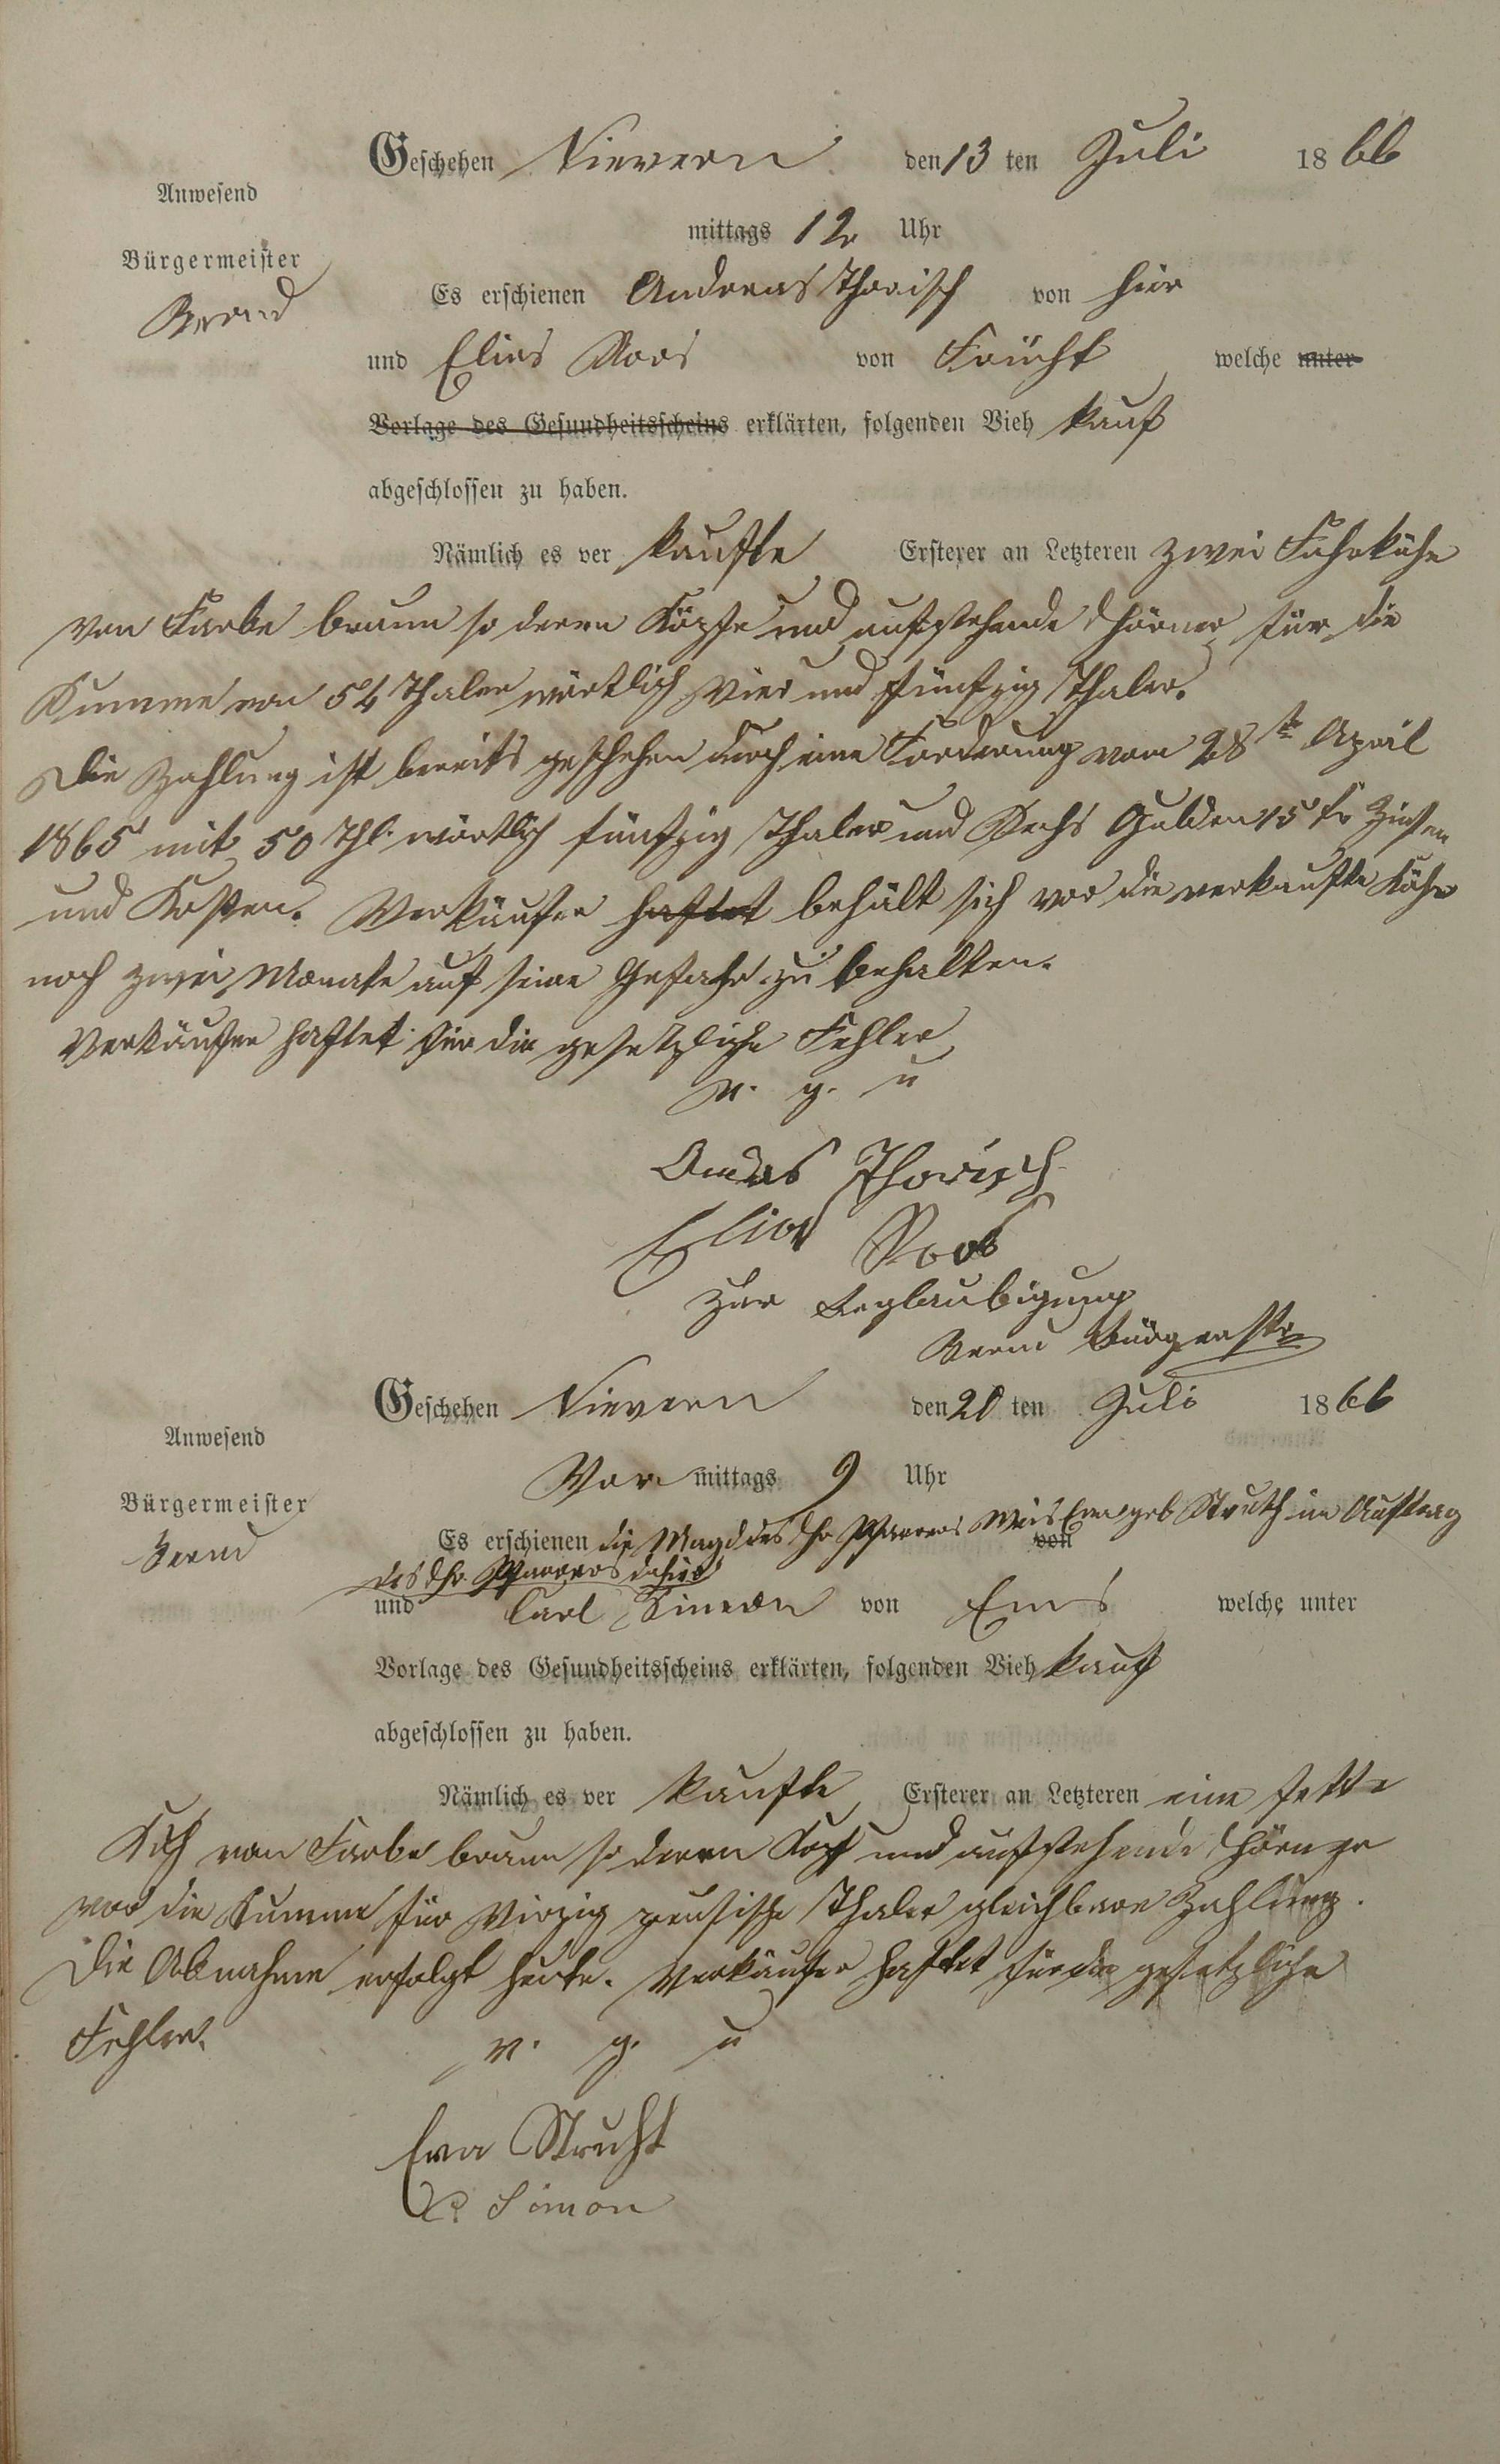 Geschehen Nievern den 13 ten Juli 1866
Anwesend
mittags 12 Uhr
Bürgermeister
Es erschienen Andreas Thorisch von hier
und Elias Roos von Frücht welche unter
Vorlage des Gesundheitsscheins erklärten, folgenden Vieh kauf
abgeschlossen zu haben.
Nämlich es ver kaufte Ersterer an Letzteren zwei Fahrkühe
von Farbe braun so deren Köpfe und aufstehende Hörner für die
Summe von 54 Thaler wörtlich Vier und fünfzig Thaler.
Die Zahlung ist bereits geschehen durch eine Forderung vom 28te April
1865 mit 50 Thl. wörtlich fünfzig Thaler und Sechs Gulden 15 kr Zinsen
und Kosten. Verkäufer haftet behält sich vor die verkaufte Kühe
noch zwei Monate auf seine Gefahr zu behalten.
Verkäufer haftet für die gesetzliche Fehler
v. g. u
Andras Thorisch
Elias Roos
Zur Beglaubigung
Bürgermstr
Geschehen Nievern den 20 ten Juli 1866
Anwesend
Vor mittags 9 Uhr
Bürgermeister
Es erschienen die Magd des H. Pfarrers Weis Eva geb Struth im Auftrag
von
des H. Pfarrers dahier
und Carl Simon von Ems welche unter
Vorlage des Gesundheitsscheins erklärten, folgenden Vieh kauf
abgeschlossen zu haben.
Nämlich es ver kaufte Ersterer an Letzteren eine fette
Kuh von Farbe braun so deren Kopf und aufstehende Hörner
vor die Summe für Virzig preusische Thaler gleichbare Zahlung.
Die Abnahme erfolgt heute. Verkäufer haftet für die gesetzliche
Fehler.
v. g. u
Eva Struht
C. Simon